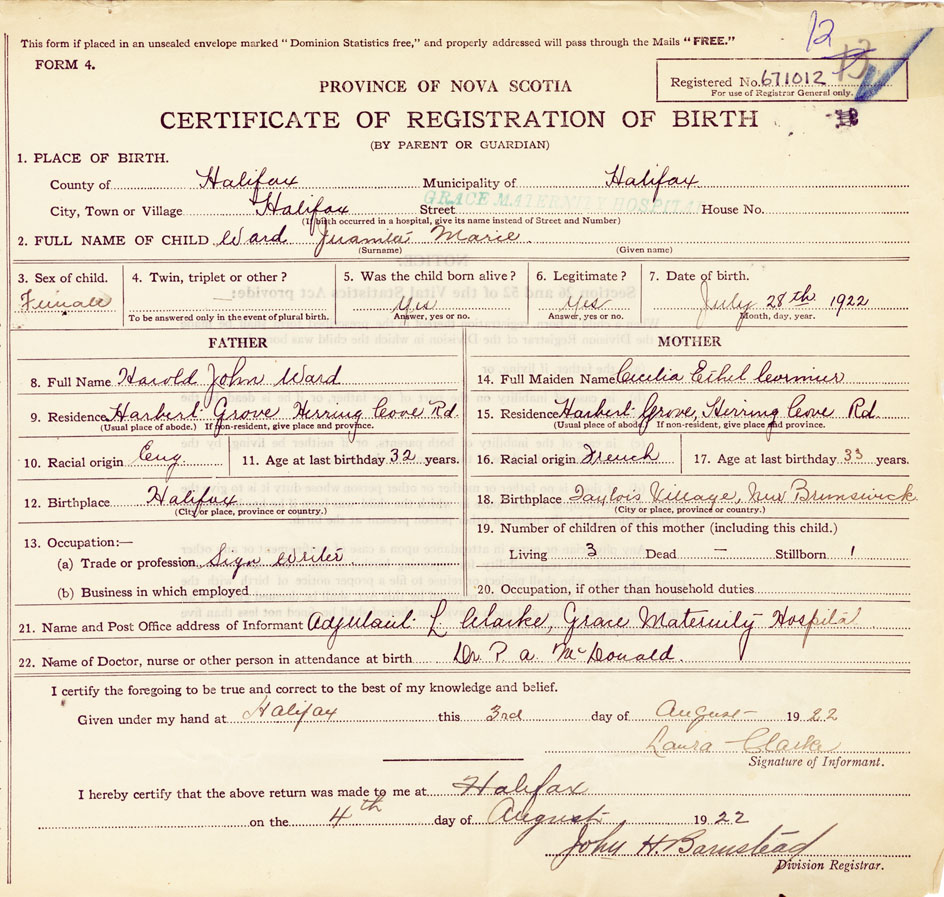 12
This form if placed in an unsealed envelope marked "Dominion Statistics free," and properly addressed will pass through the Mails "FREE."
FORM 4.
Registered No. 671012
For use of Registrar General only.
PROVINCE OF NOVA SCOTIA
CERTIFICATE OF REGISTRATION OF BIRTH
(BY PARENT OR GUARDIAN)
1. PLACE OF BIRTH.
County of Halifax Municipality of Halifax
City, Town or Village Halifax Street GRACE MATERNITY HOSPITAL House No.
(If birth occurred in a hospital, give its name instead of Street and Number)
2. FULL NAME OF CHILD Ward Juanita Marie
(Surname) (Given name)
3. Sex of child. 4. Twin, triplet or other? 5. Was the child born alive? 6. Legitimate? 7. Date of birth.
Female — Yes Yes July 28th 1922
To be answered only in the event of plural birth. Answer, yes or no. Answer, yes or no. Month, day, year.
FATHER MOTHER
8. Full Name Harold John Ward 14. Full Maiden Name Cecilia Ethel Cormier
9. Residence Harbert Grove Herring Cove Rd. 15. Residence Harbert Grove, Herring Cove Rd.
(Usual place of abode.) If non-resident, give place and province. (Usual place of abode.) If non-resident, give place and province.
10. Racial origin Eng 11. Age at last birthday 32 years. 16. Racial origin French 17. Age at last birthday 33 years.
12. Birthplace Halifax 18. Birthplace Taylors Village, New Brunswick
(City or place, province or country.) (City or place, province or country.)
13. Occupation:— 19. Number of children of this mother (including this child.)
(a) Trade or profession Sign Writer Living 3 Dead — Stillborn 1
(b) Business in which employed 20. Occupation, if other than household duties
21. Name and Post Office address of Informant Adjutant L Clarke, Grace Maternity Hospital
22. Name of Doctor, nurse or other person in attendance at birth Dr. P a. McDonald.
I certify the foregoing to be true and correct to the best of my knowledge and belief.
Given under my hand at Halifax this 3rd day of August 1922
Laura Clarke
Signature of Informant.
I hereby certify that the above return was made to me at Halifax
on the 4th day of August 1922
John H. Barnstead
Division Registrar.